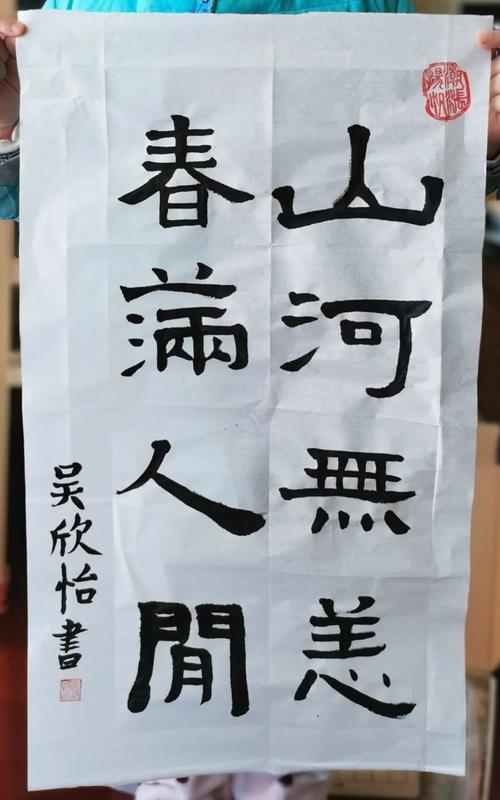 山河無恙
春滿人間
吴欣怡書